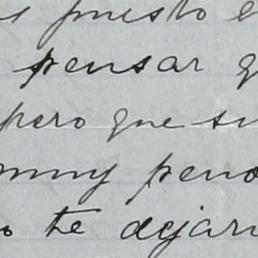 puesto e
pensar q
pero que su
muy peno
te dejar